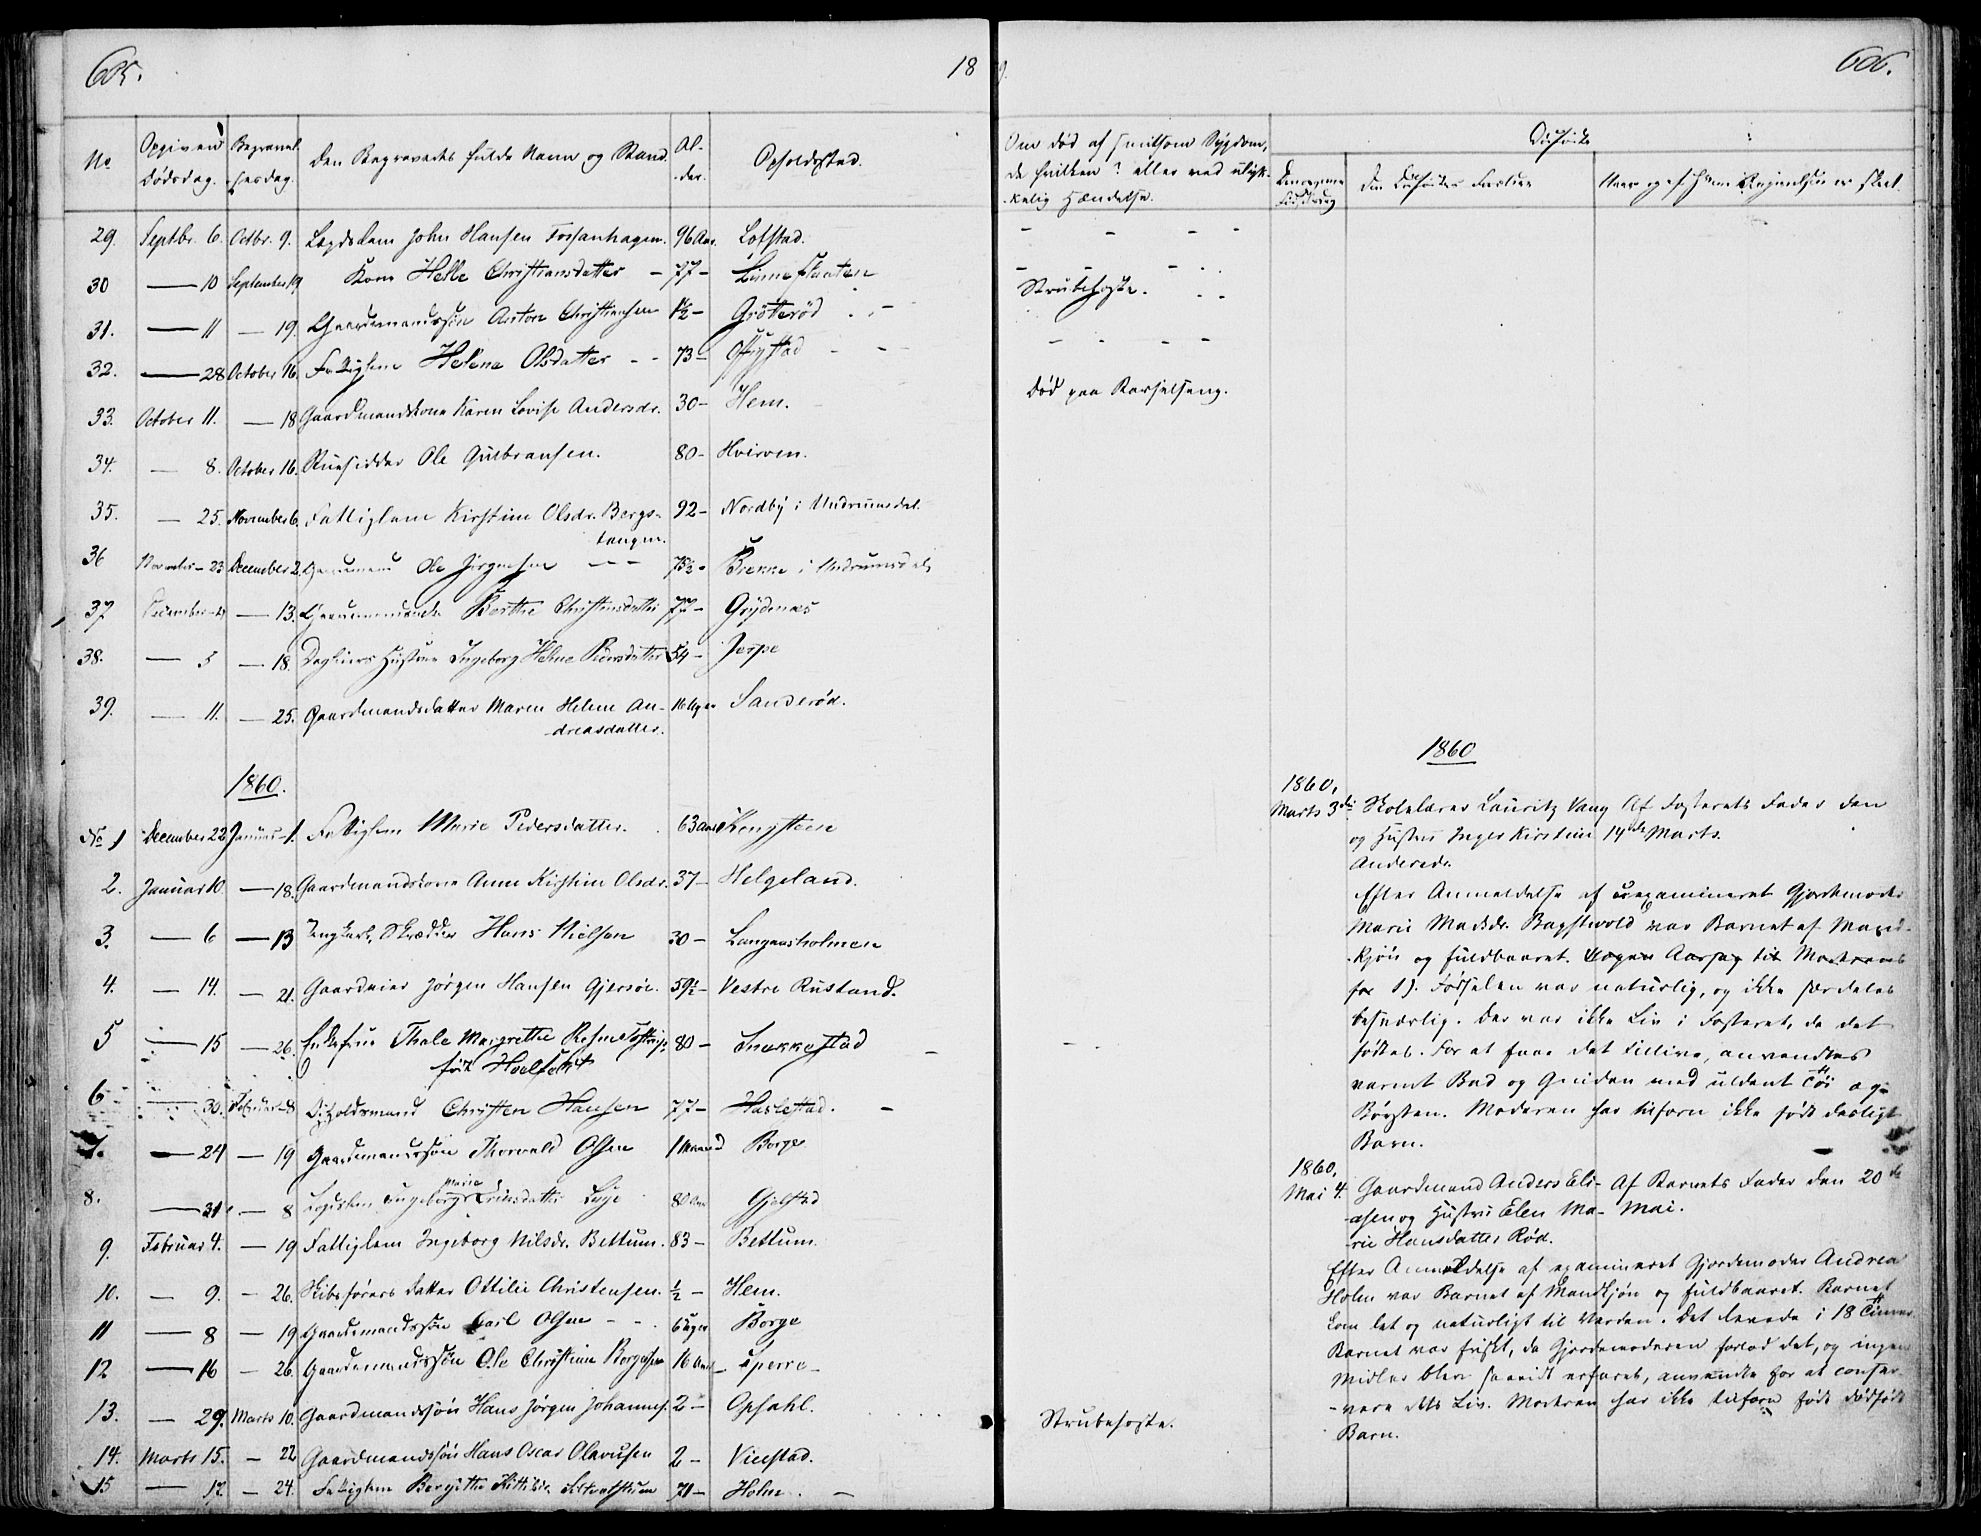 605.
18
No
Opgiven Dødsdag.
Begravelsesdag.
Den Begravedes fulde Navn og Stand.
Alder.
Opholdssted.
29. Septbr. 6. Octbr. 9. Lægdslem John Hansen Fossanhagen. 96 Aar. Lofstad.
30 — 10 September 19 Kone Helle Christiansdatter — 77 – Linnestranten
31. — 11 — 19 Gaardmandssøn Anton Christiansen 1½ – Grøterød
32. — 28 October 16. Fattiglem Helene Olsdatter - - 73 –
33. October 11. — 18 Gaardmandskone Karen Lovise Andersdr. 30 – Hem.
34. — 8. October 16. Huusidder Ole Gulbransen. 80 – Hvirven.
35. — 25. November 6. Fattiglem Kirstine Olsdr. Bergs-
tangen. 92 – Nordby i Undrumsdal
36 November – 23 December 2. Gaardmand Ole Jørgensen - - - 73½ – Brekke i Undrumsdal
37 December – 4 — 13. Gaardmandsenke Berthe Christensdatter 77 – Grydenæs
38. — 5 — 18. Daglejers Hustrue Ingeborg Helene Peersdatter 54 – Jerpe
39. — 11. — 25. Gaardmandsdatter Maren Helene An-
dreasdatter. 16 Uger Sanderød.
1860.
No 1 December 22 Januar – 1. Fattiglem Marie Pedersdatter. 63 Aar Kongsteen
2. Januar 10 — 18. Gaardmandskone Anne Kirstine Olsdr. 37 – Helgeland.
3. — 6 — 13 Ungkarl, Skrædder Hans Nielsen 30 – Langausholmen
4. — 14. — 21. Gaardeier Jørgen Hansen Gjersøe. 59½ – Vestre Rustand.
5 — 15 — 26. Enkefrue Thale Margrethe
født Hoelfeldt 80 – Snekkestad
6 — 30. Februar – 8 Opholdsmand Christen Hansen 77 – Haslestad.
7. — 24 — 19 Gaardmandssøn Thorvald Olsen 1 Maaned Borge
8. — 31 — 8 Lægdslem Ingeborg Marie 80 Aar Gjelstad
9. Februar 4. — 19 Fattiglem Ingeborg Nilsdr. Bettum. 83 – Bettum
10. — 9. — 26. Skibsførers datter Ottilie Christensen. ½ – Hem.
11 — 8 — 19 Gaardmandssøn Carl Olsen - - 6 Uger Borge
12 — 16 — 26. Gaardmandssøn Ole Christian Borgesen 16 Aar – Sperre –
13. — 29. Marts 10. Gaardmandssøn Hans Jørgen Johannes. 2 – Opsahl.
14. Marts 15. — 22 Gaardmandssøn Hans Oscar Olavusen 2 – Viulstad.
15 — 12 — 24. Fattiglem Bergitte Kittilsdr. 71 – Holm.
9.
606.
Om død af smitsom Sygdom,
da hvilken? eller ved ulyk-
kelig Hændelse.
Dødfødte
Den egne
Fødselsdag
Den Dødfødtes Forældre
Naar og af hvem Anmeldelsen er skeet.
Strubehoste.
Død paa Barselseng.
1860
1860,
Marts 3die Skolelærer Lauritz Vang Af Fosterets Fader den
og Hustru Inger Kirstine 14de Marts.
Andersdr.
Efter Anmeldelse af uexamineret Gjordemoder
Marie Madsdr. Bagstvold var Barnet af Mand-
kjøn og fuldbaaret. Nogen Aarsag til Moderens
for 1). Fødselen var naturlig, og ikke særdeles
besværlig. Der var ikke Liv i Fosteret, da det
fødtes. For at faae det tillive, anvendtes
varmt Bad og Gniden med uldent Tøi og
Børsten. Moderen har tilforn ikke født dødligt
Barn.
1860,
Mai 4. Gaardmand Anders Eli- Af Barnets Fader den 20de
asen og Hustru Elen Ma- Mai.
rie Hansdatter Rød.
Efter Anmeldelse af examineret Gjordemoder Andrea
Holm var Barnet af Mandkjøn og fuldbaaret. Barnet
kom let og naturligt til Verden. Det levede i 18 Timer.
Barnet var friskt, da Gjordemoderen forlod det, og ingen
Midler blev saavidt erfaret, anvendte for at conser-
vere dets Liv. Moderen har ikke tilforn født dødfødt
Barn.
Strubehoste.